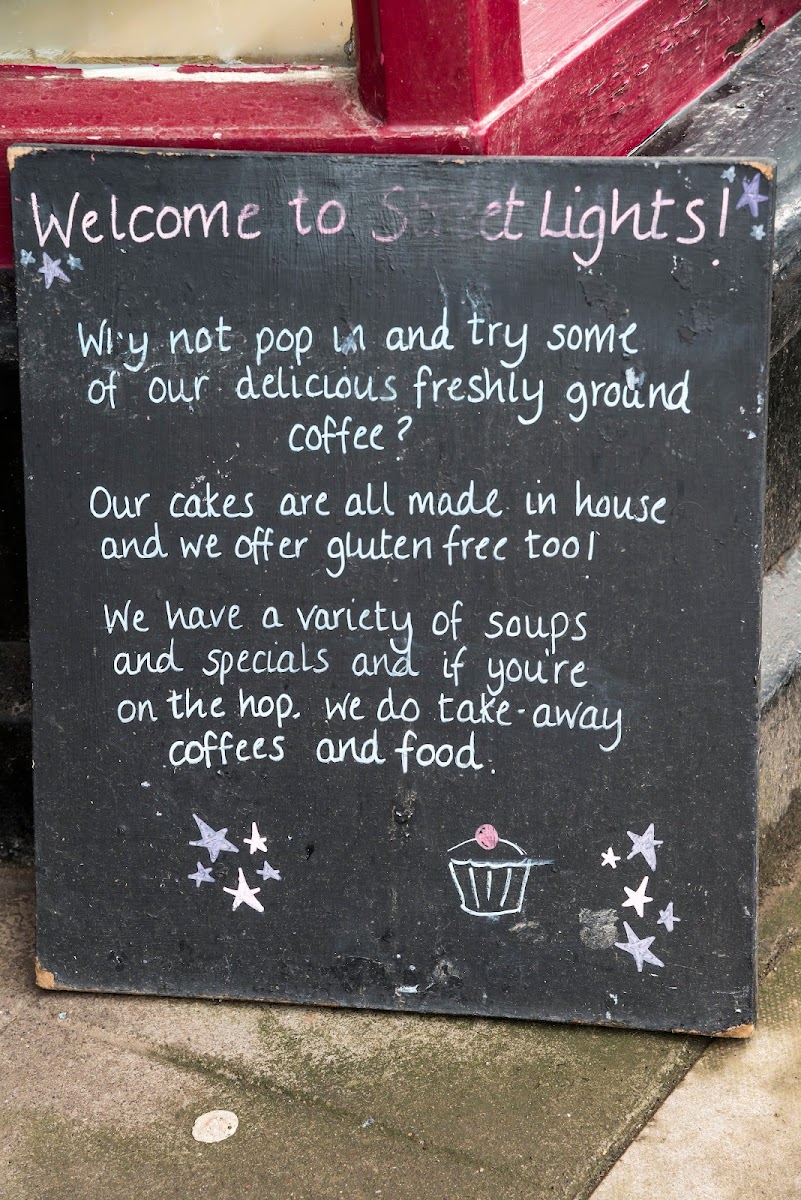 Welcome to Street Lights!
Why not pop in and try some
of our delicious freshly ground
coffee?
Our cakes are all made in house
and we offer gluten free too!
We have a variety of soups
and specials and if you're
on the hop. we do take-away
coffees and food.